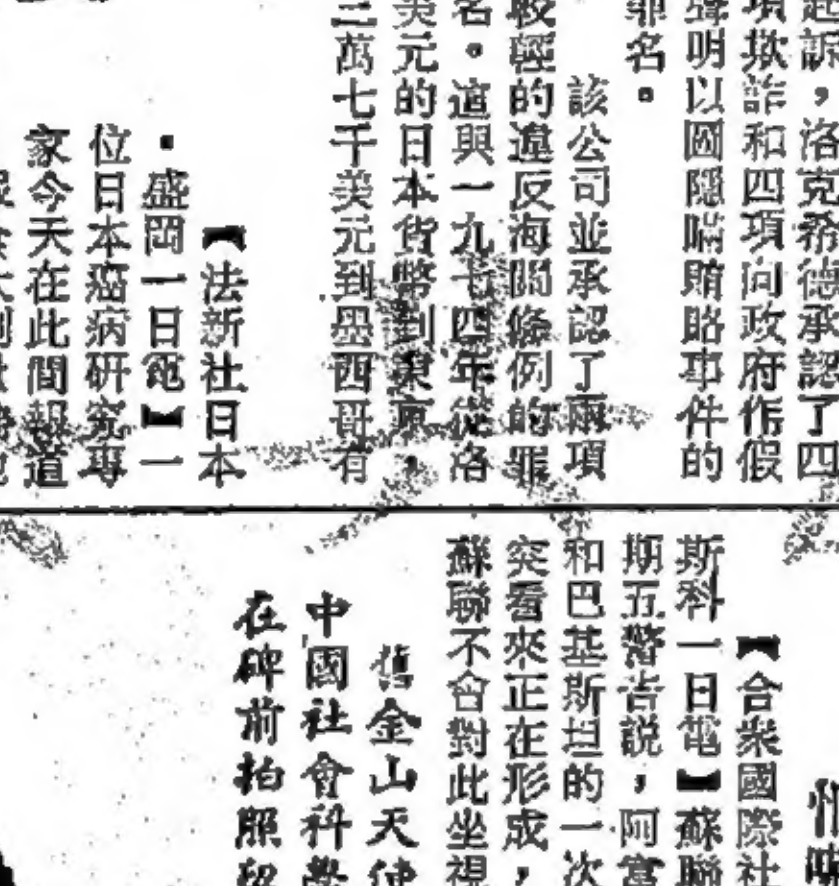 起訴，洛克希德承認了四
項欺詐和四項向政府作假
聲明以圖隱瞞賄賂事件的
罪名。
該公司並承認了兩項
較輕的違反海關條例的罪
名。這與一九七四年從洛
美元的日本貨幣到東京，
三萬七千美元到墨西哥有
【法新社日本
盛岡一日電】一
位日本癌病研究專
家今天在此間報道
【合衆國際社
斯科一日電】蘇聯
期五警吿說，阿富
和巴基斯坦的一次
突看來正在形成，
蘇聯不會對此坐視
舊金山天使
中國社會科學
在碑前拍照留